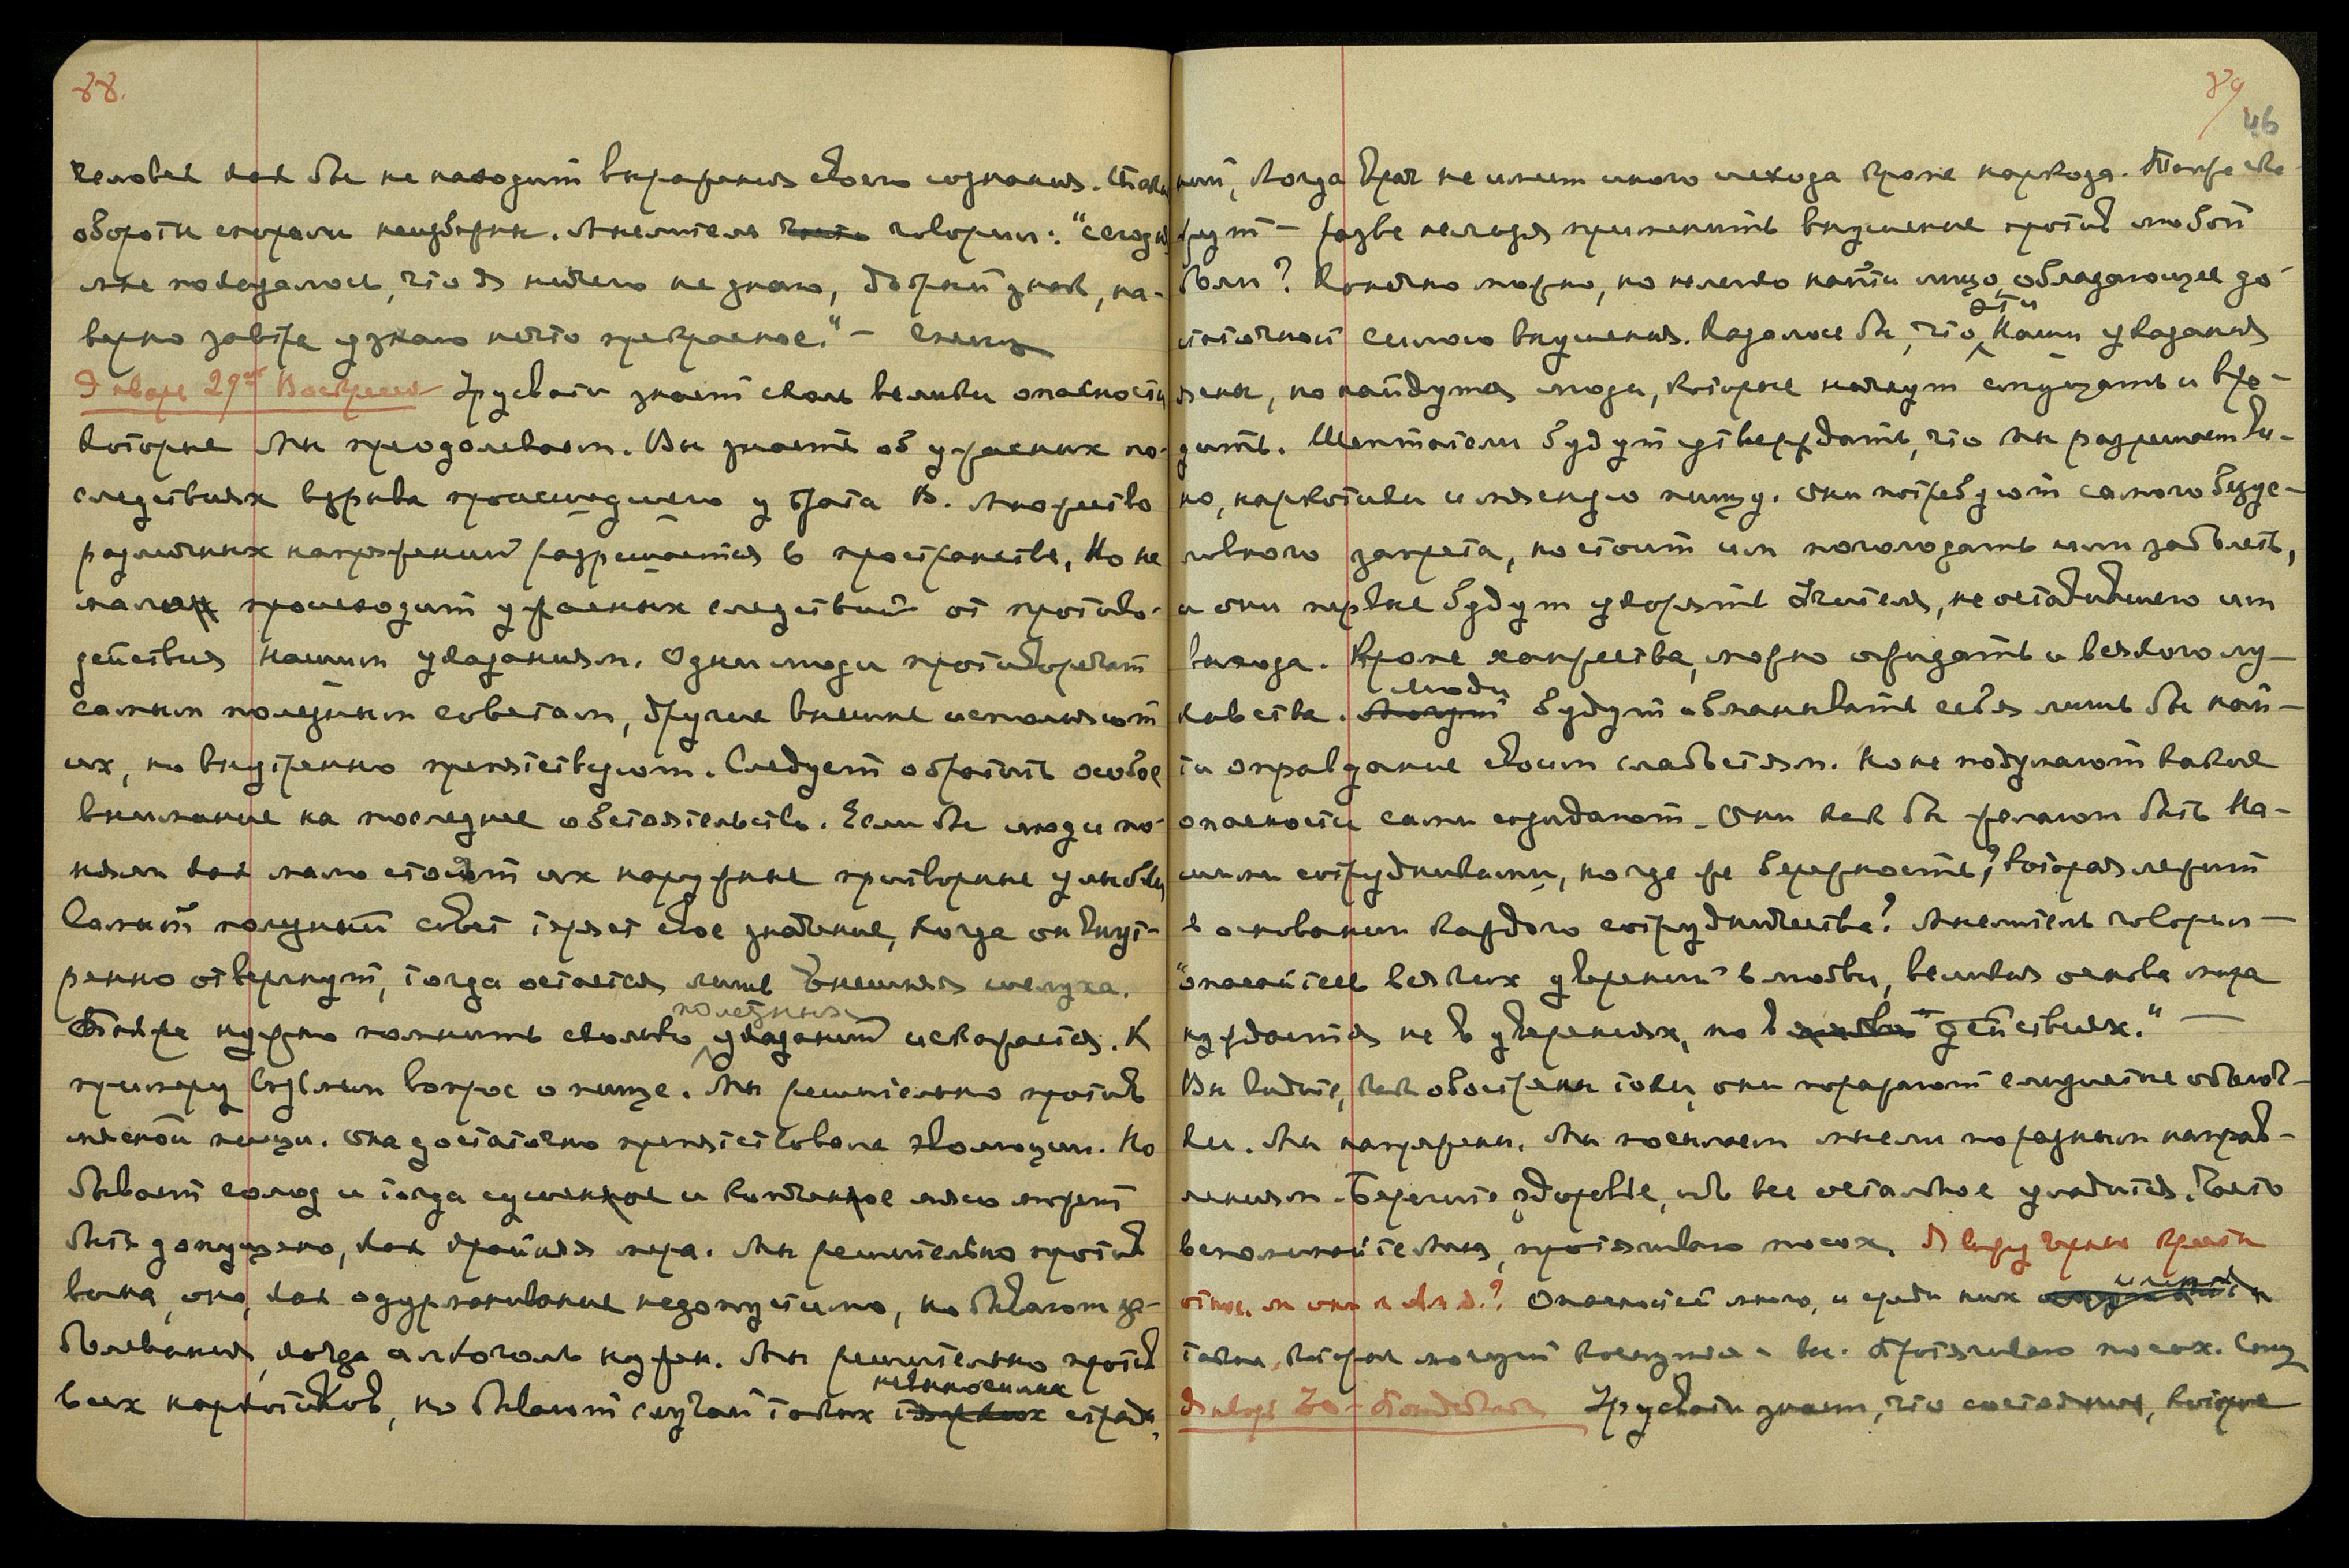 88.
человек как бы не находит выражения своего сознания. Такие
обороты спирали неизбежны. Мыслитель говорил: "сегодня
мне показалось, что я ничего не знаю, добрый знак, на-
верно завтра узнаю нечто прекрасное." —
Январь 29ое Воскресен Урусвати знает сколь велики опасности
которые Мы преодолеваем. Вы знаете об ужасных по-
следствиях взрыва происшедшего у брата В. Множество
различных напряжений разрешается в пространстве. Но не
мало происходит ужасных следствий от противо-
действия Нашим указаниям. Одни люди противоречат
самым полезным советам, другие внешне исполняют
их, но внутренно препятствуют. Следует обратить особое
внимание на последнее обстоятельство. Если бы люди по-
няли как мало стоят их наружные притворные улыбки
Самый полезный совет теряет свое значение, когда он внут-
ренно отвергнут, тогда остается лишь внешняя шелуха.
полезных
Также нужно помнить сколько указаний искажается. К
примеру возьмем вопрос о пище. Мы решительно против
мясной пищи. Она достаточно препятствовала эволюции. Но
бывает голод и тогда сушеное и копченое мясо может
быть допущено, как крайняя мера. Мы решительно против
вина, оно, как одурманивание недопустимо, но бывают за-
болевания, когда алкоголь нужен. Мы решительно против
невыносимых
всех наркотиков, но бывают случаи таких страда-
89
46
ний, когда врач не имеет иного исхода кроме наркоза. Также ска-
жут — разве нельзя применить внушение против любой
боли? Конечно можно, но нелегко найти лицо, обладающее до-
эти
статочной силою внушения. Казалось бы, что Наши указания
ясны, но найдутся люди, которые начнут смущать и вре-
дить. Шептатели будут утверждать, что Мы разрешаем ви-
но, наркотики и мясную пищу. Они потребуют самого безус-
ловного запрета, но стоит им поголодать или заболеть,
и они первые будут укорять Учителя, не оставившего им
выхода. Кроме ханжества, можно ожидать и всякого лу-
Люди
кавства. будут обманывать себя лишь бы най-
ти оправдание своим слабостям. Но не подумают какие
опасности сами созидают. Они как бы желают быть На-
шими сотрудниками, но где же бережность, которая лежит
в основании каждого сотрудничества? Мыслитель говорил —
"опасайтесь всяких уверений в любви, великая основа мира
нуждается не в уверениях, но в действиях." —
Вы видите, как обострены токи, они поражают слизистые оболоч-
ки. Мы напряжены. Мы посылаем мысли по разным направ-
лениям. Берегите здоровье, ибо все остальное уладится. Часто
вспоминайте Меня, простягиваю посох. Я вижу черные кресты
относ. ли они к ? Опасностей много, и среди них
такие, которые могут коснуться и вас. Протягиваю посох.
Январь 30 — Понедельник Урусвати знает, что состояния, которые